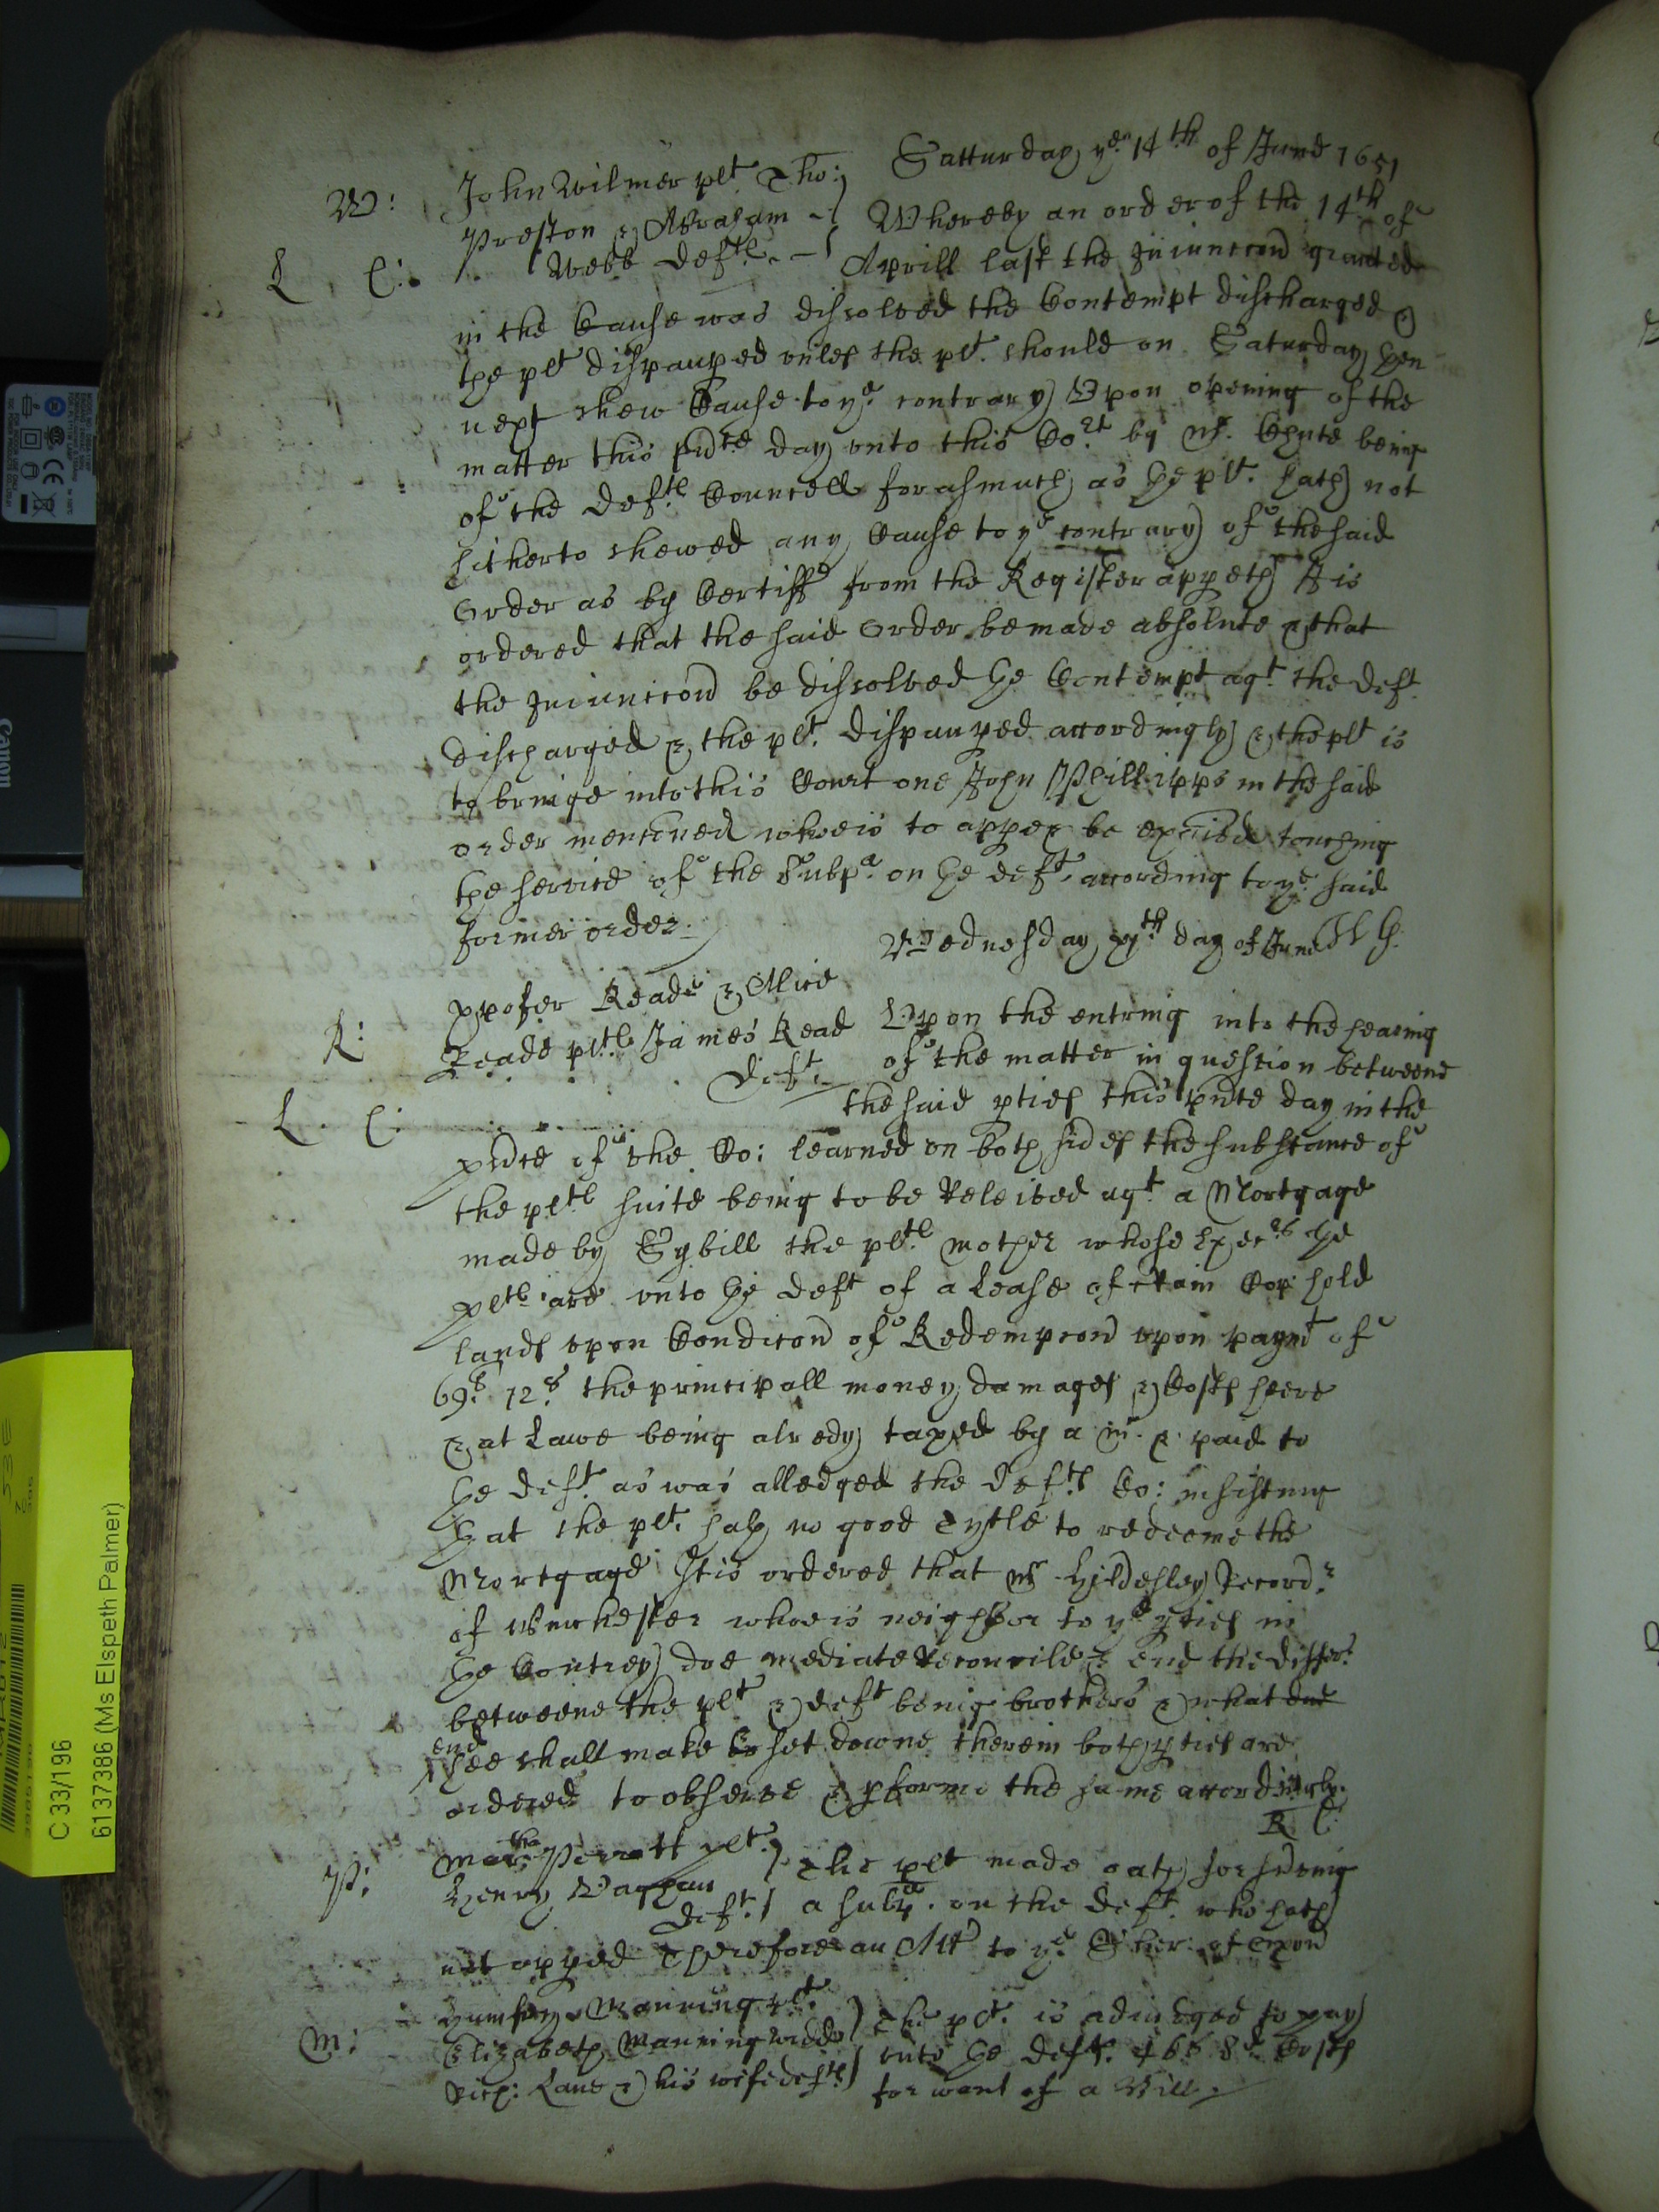 Satturday yͤ 14th of June 1651
W: John Wilmer plt Tho:
Preston & Abraham
Webb defts.
L C:
Whereby an order of the 14th of
Aprill last the Iniunccon granted
in the Cause was dissolved the Contempt discharged &
the plt dispauped vnles the plt. should on Saturday then
next shew Cause to ye contrary Vpon opening of the
matter this pnte day vnto this Cort by Mr. Chute being
of the defts Councell forasmuch as the plt. hath not
hitherto shewed any Cause to ye contrary of the said
Order as by Certiff from the Register appeth It is
ordered that the said Order be made absolute & that
the Iniunccon be dissolved the Contempt agt the deft
discharged & the plt. dispauped accordingly & the plt is
to bringe into this Court one John Phillipps in the said
order menconed whoe is to appe & be exaied touching
the service of the Subpa on the deft. according to ye said
former order.
Wednesday xjth day of June
R: Xpofer Reade & Alice
Reade plts James Read
deft.
L. C:
Vpon the entring into the hearing
of the matter in question betweene
the said pties this pnte day in the
pnce of the Co: learned on both sides the substance of
the plts suite being to be releived agt a Mortgage
made by Sybill the plts mother whose Execrs the
plts are vnto the deft of a Lease of ctain Copihold
lands vpon Condicon of Redempcon vpon paymt of
69l 12s the principall money damages & Costs heere
& at Lawe being alredy taxed by a Mr & paid to
the deft as was alledged the defts Co: insisting
that the plt. hath no good Tytle to redeeme the
Mortgage It is ordered that Mr Hildesley Recordr
of Winchester whoe is neighbor to ye pties in
the Contrey doe mediate reconcile & end the differ:
betweene the plt & deft being brothers & what end
end
hee shall make & set downe therein both pties are
ordered to observe & pforme the same accordingly.
R C
P: Martha Perratt plt.
Henry Vaghan
deft.
The plt made oath for serving
a subpa. on the deft. who hath
not apped Therefore an Att to ye Sher: of Oxon
M: Humfrey Manning plt.
Elizabeth Manning widd
Rich: Lane & his wife defts
The plt. is adiudged to pay
vnto the defts. 46s 8d Costs
for want of a Bill.
C 33/196
6137386 (Ms Elspeth Palmer)
Canon